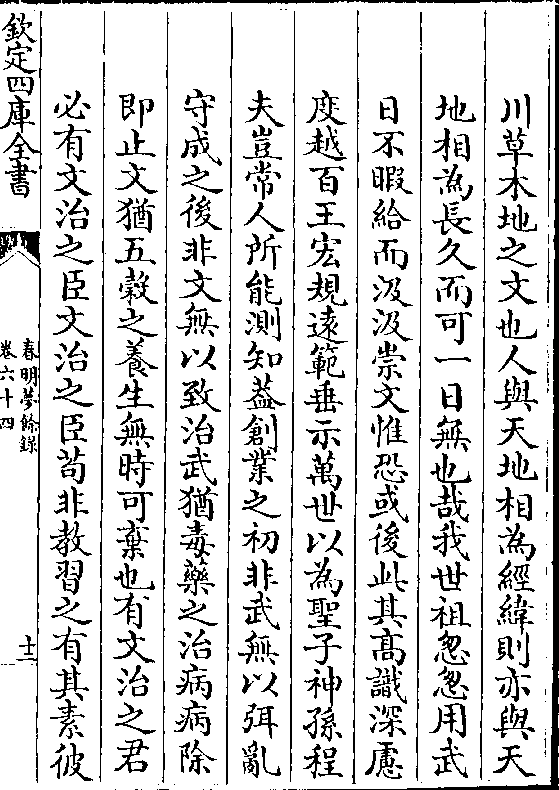 川草木地之文也人與天地相為經緯則亦與天
地相為長久而可一日無也哉我世祖怱怱用武
日不暇給而汲汲崇文惟恐或後此其髙識深慮
度越百王宏規遠範垂示萬世以為聖子神孫程
夫豈常人所能測知葢創業之初非武無以弭亂
守成之後非文無以致治武猶毒藥之治病病除
即止文猶五榖之養生無時可棄也有文治之君
必有文治之臣文治之臣苟非教習之有其素彼
欽定四庫全書
春明夢餘錄
卷六十四
十二